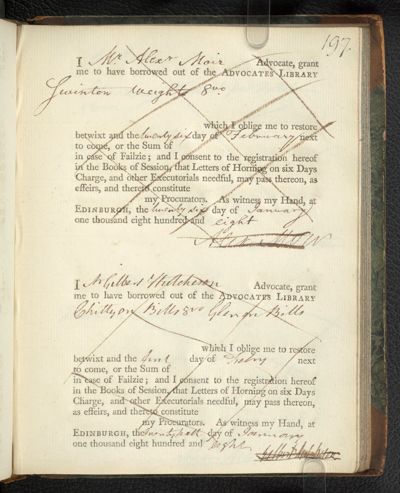 197.
I Mr Alexr Moir Advocate, grant
me to have borrowed out of the ADVOCATES LIBRARY
Swinton weights 8vo
which I oblige me to restore
betwixt and the twenty six day of February next
to come, or the Sum of
in case of Failzie; and I consent to the registration hereof
in the Books of Session, that Letters of Horning on six Days
Charge, and other Executorials needful, may pass thereon, as
effeirs, and thereto constitute
my Procurators. As witness my Hand, at
EDINBURGH, the twenty six day of January
one thousand eight hundred and eight
Alex Moir
I Mr Gilbert Hutcheson Advocate, grant
me to have borrowed out of the ADVOCATES LIBRARY
Chitty on Bills 8vo Glen on Bills
which I oblige me to restore
betwixt and the first day of next
to come, or the Sum of
in case of Failzie; and I consent to the registration hereof
in the Books of Session, that Letters of Horning on six Days
Charge, and other Executorials needful, may pass thereon,
as effeirs, and thereto constitute
my Procurators. As witness my Hand, at
EDINBURGH, the day of January
one thousand eight hundred and eight